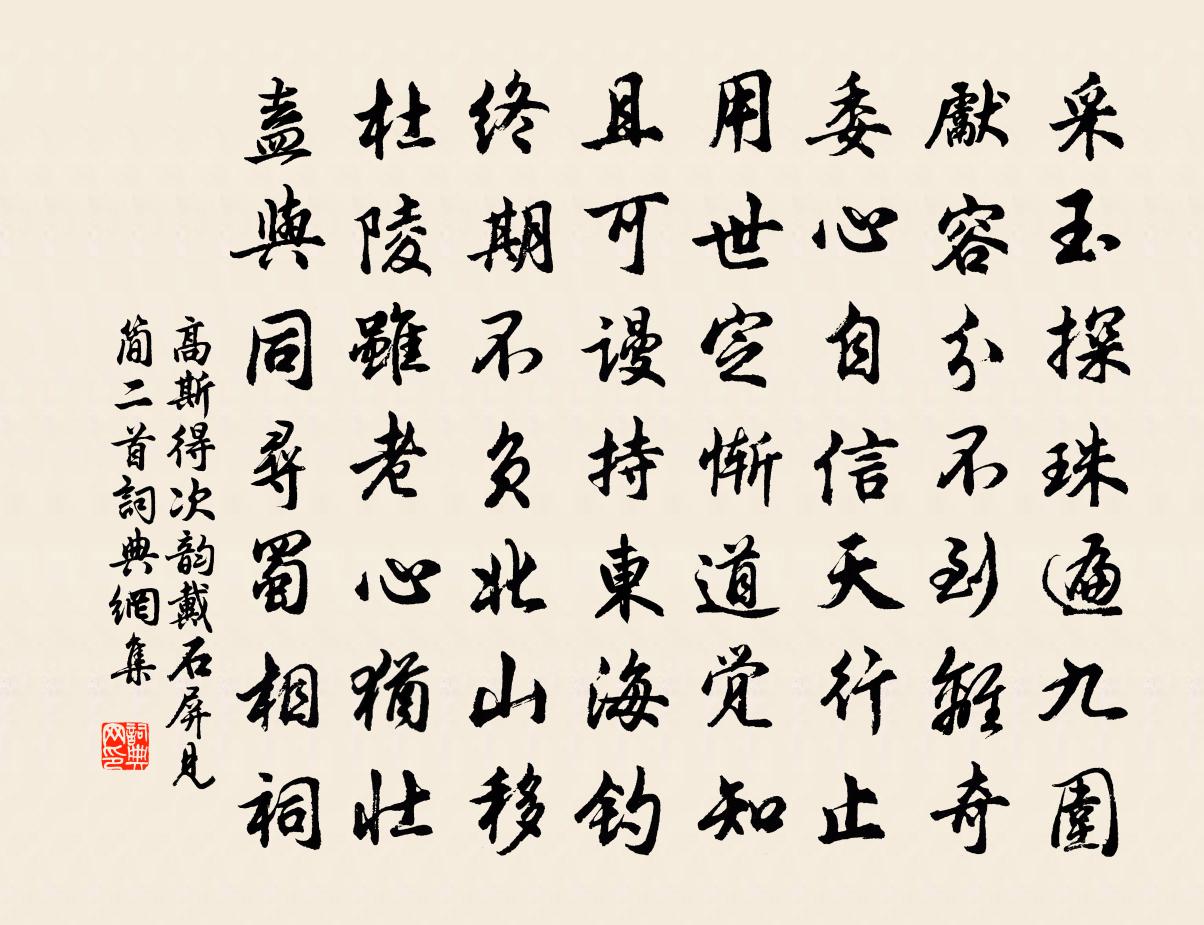 采玉探珠遍九圍
獻容分不到離奇
委心自信天行止
用世定慚道覚知
且可謾持東海釣
終期不負北山移
杜陵雖老心猶壯
盍與同尋蜀相祠
高斯得次韵戴石屏見
简二首詞典網集
詞典网印